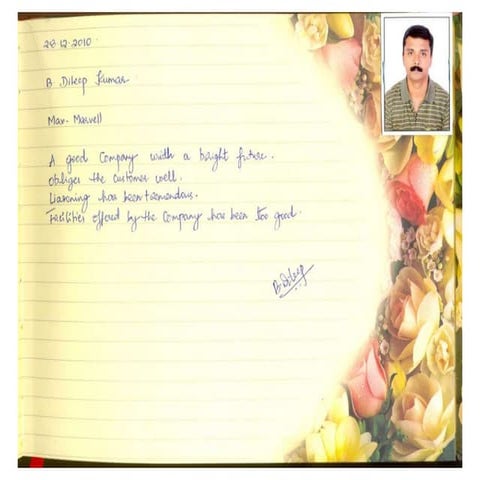 28.12.2010.
B Dileep Kumar
Max-Marvell
A good Company with a bright future.
Obliges the customer well.
Liasening has been tremendous.
Facilities offered by the Company has been too good.
B. Dileep